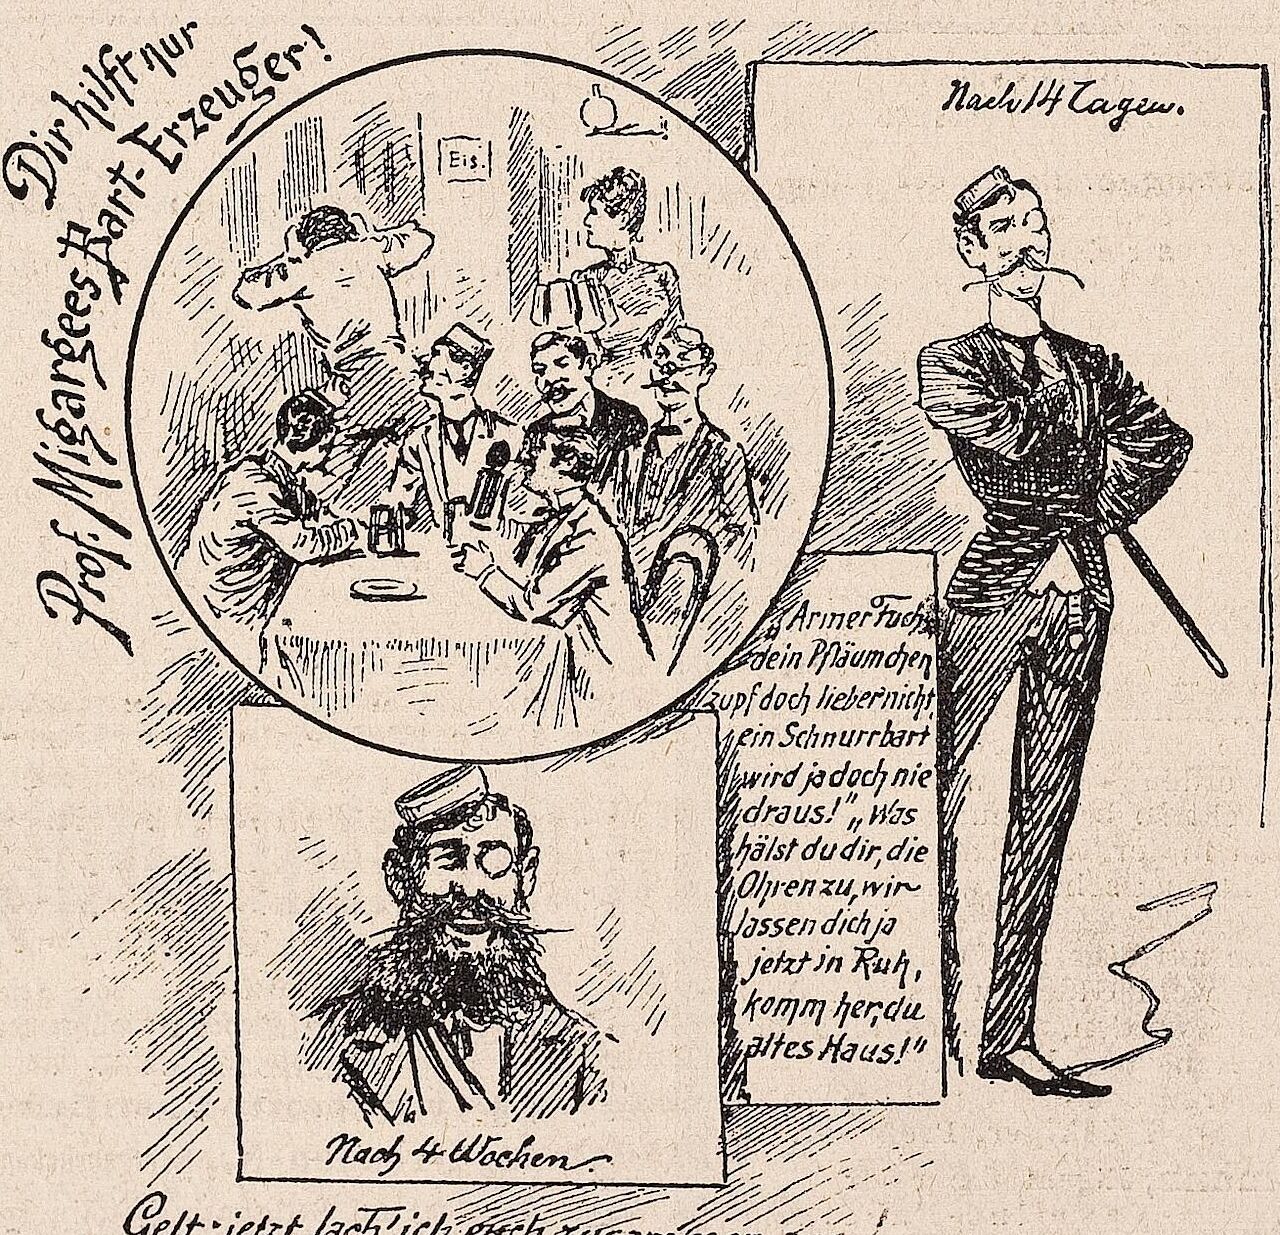 Dir hilft nur
Prof. Migargees Bart-Erzeuger!
Eis.
Nach 14 Tagen.
„Armer Fuchs
dein Pfläumchen
zupf doch lieber nicht
ein Schnurrbart
wird ja doch nie
draus!" „Was
hälst du dir, die
Ohren zu, wir
lassen dich ja
jetzt in Ruh,
komm her, du
altes Haus!"
Nach 4 Wochen.
Gelt, jetzt lach' ich euch